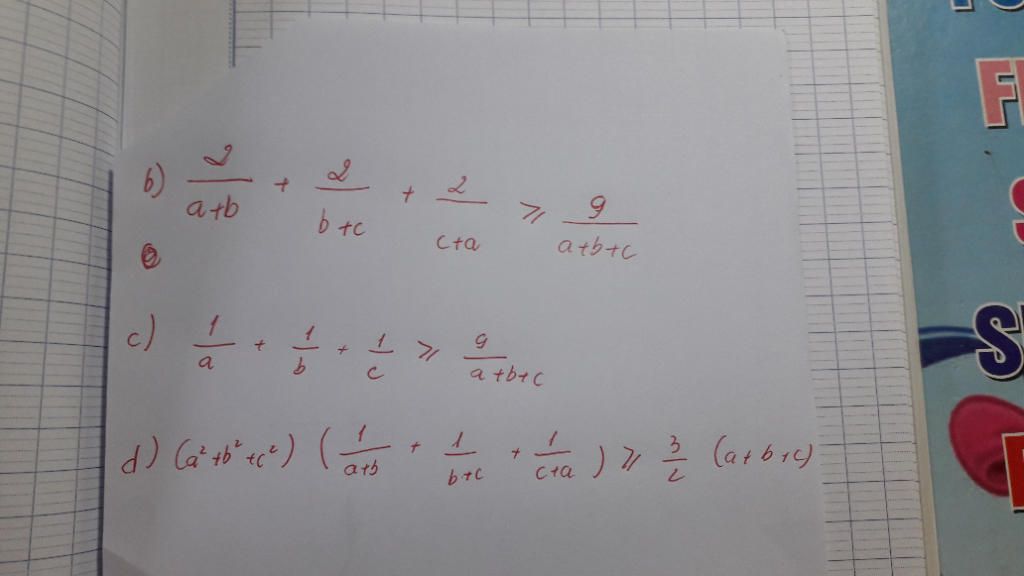 b) 2/(a+b) + 2/(b+c) + 2/(c+a) ⩾ 9/(a+b+c)
c) 1/a + 1/b + 1/c ⩾ 9/(a+b+c)
d) (a²+b²+c²) (1/(a+b) + 1/(b+c) + 1/(c+a)) ⩾ 3/2 (a+b+c)